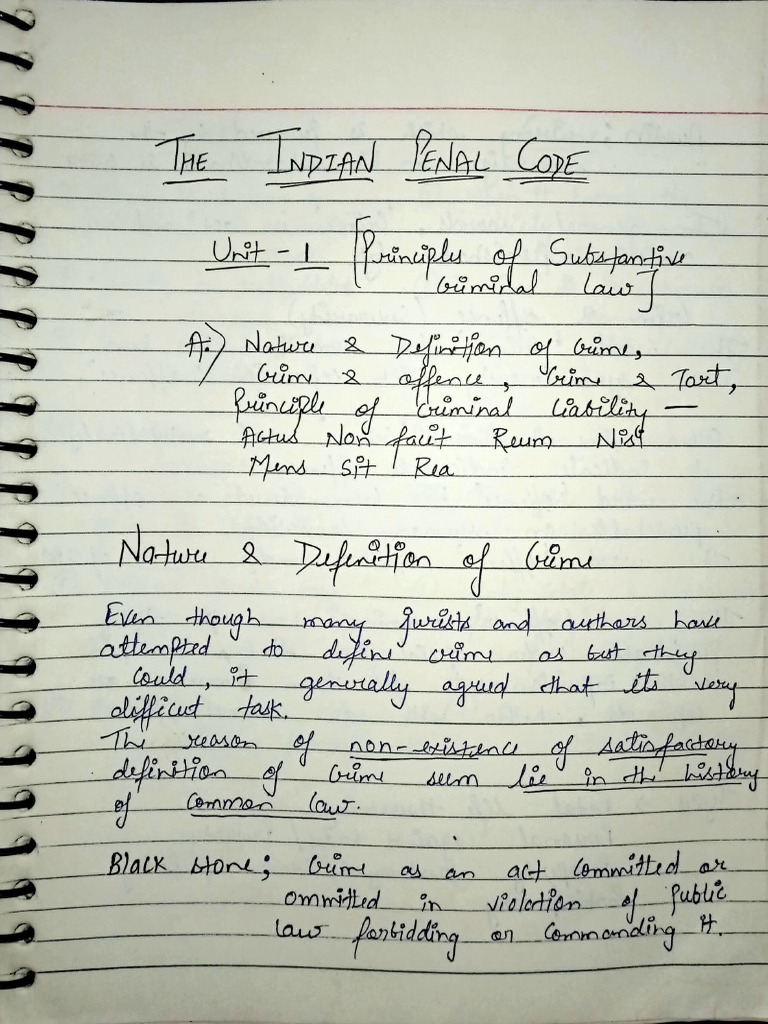 THE INDIAN PENAL CODE
Unit - 1 [Principles of Substantive
Criminal Law]
A.) Nature & Definition of Crime,
Crime & offence, Crime & Tort,
Principle of Criminal Liability —
Actus Non facit Reum Nisi
Mens Sit Rea
Nature & Definition of Crime
Even though many jurists and authors have
attempted to define crime as best they
could, it generally agreed that its very
difficult task.
The reason of non-existence of satisfactory
definition of Crime seem lie in the history
of common law.
Black stone; Crime as an act committed or
ommitted in violation of public
law forbidding or commanding it.